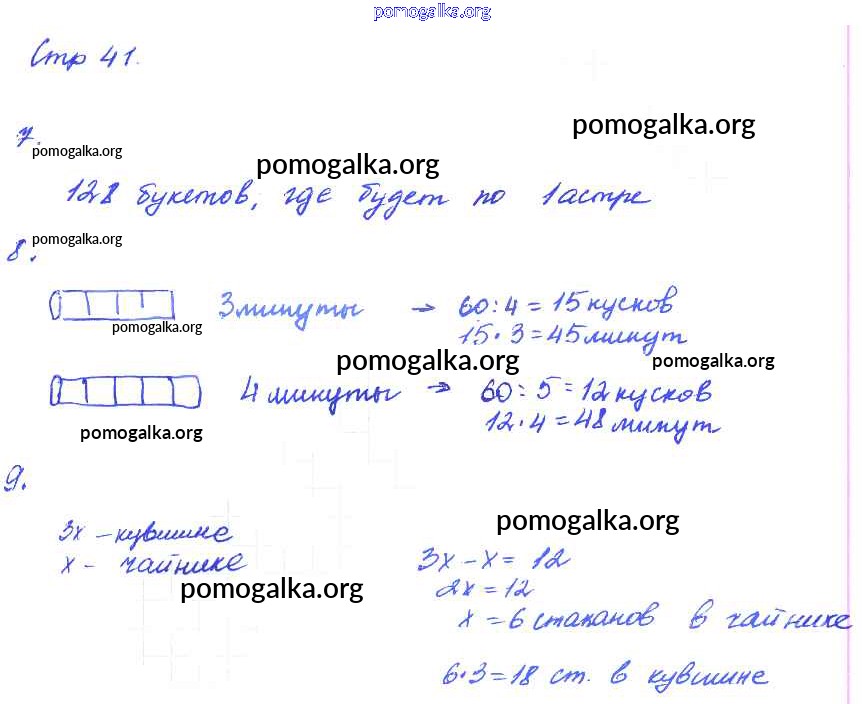 pomogalka.org
Стр 41.
pomogalka.org
7.
pomogalka.org
pomogalka.org
128 букетов, где будет по 1 астре
pomogalka.org
8.
3 минуты → 60 : 4 = 15 кусков
pomogalka.org
15 · 3 = 45 минут
pomogalka.org
pomogalka.org
4 минуты → 60 : 5 = 12 кусков
12 · 4 = 48 минут
pomogalka.org
9.
pomogalka.org
3х – кувшине
х – чайнике
3х – х = 12
pomogalka.org
2х = 12
х = 6 стаканов в чайнике
6 · 3 = 18 ст. в кувшине